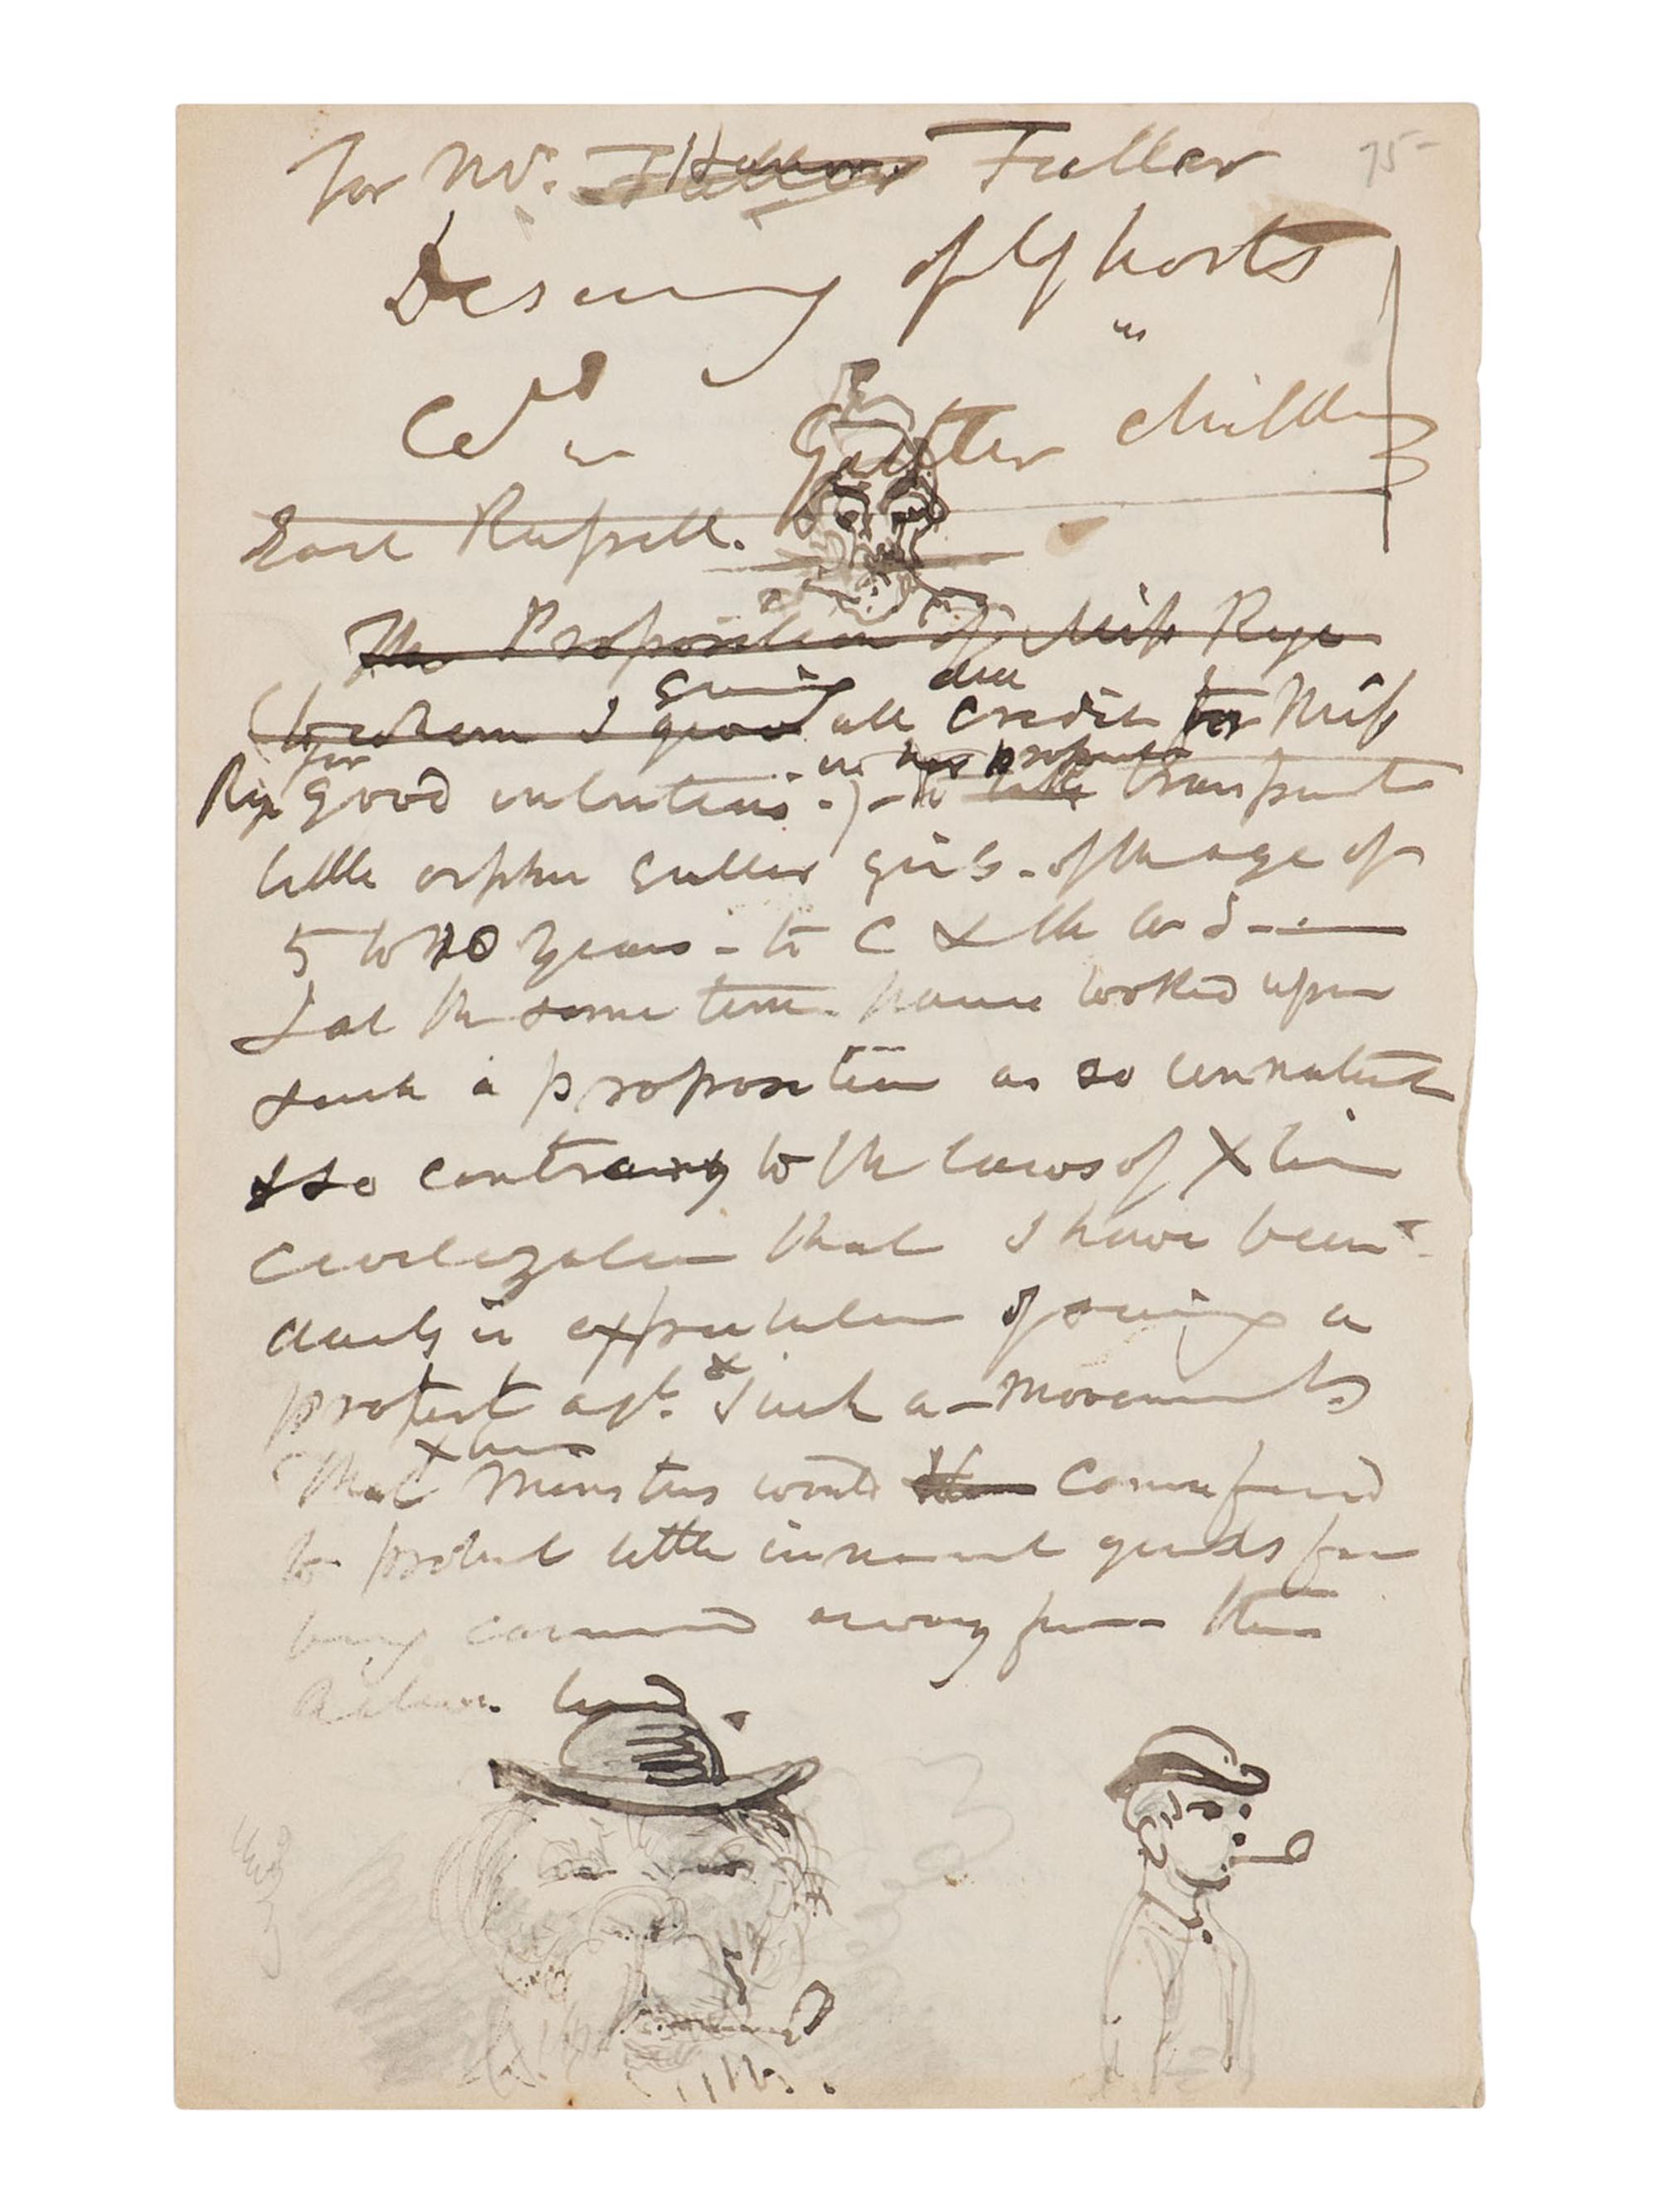 For Mr. Fuller
75-
of Ghosts
in
Gutter children
Earl Russell.
The Proposition of Miss Rye
giving due
I all credit for Miss
for in her proposal
Rye good intentions.) - to transport
little orphan gutter girls - of the age of
5 to 10 years - to C &
& at the same time have looked upon
such a proposition as so unnatural
& so contrary to the laws of Xtian
Civilization that I have been
daily in expectation of seeing a
protest agt. such a movement
Xtian
That Ministers would come forward
to protect little innocent girls from
being carried away from their
land.